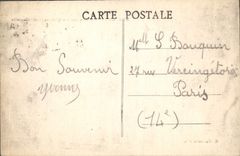 CARTE POSTALE
Mlle S Bouquin
27 rue Vercingétorix
Paris
(14e)
Bon Souvenir
Yvonne